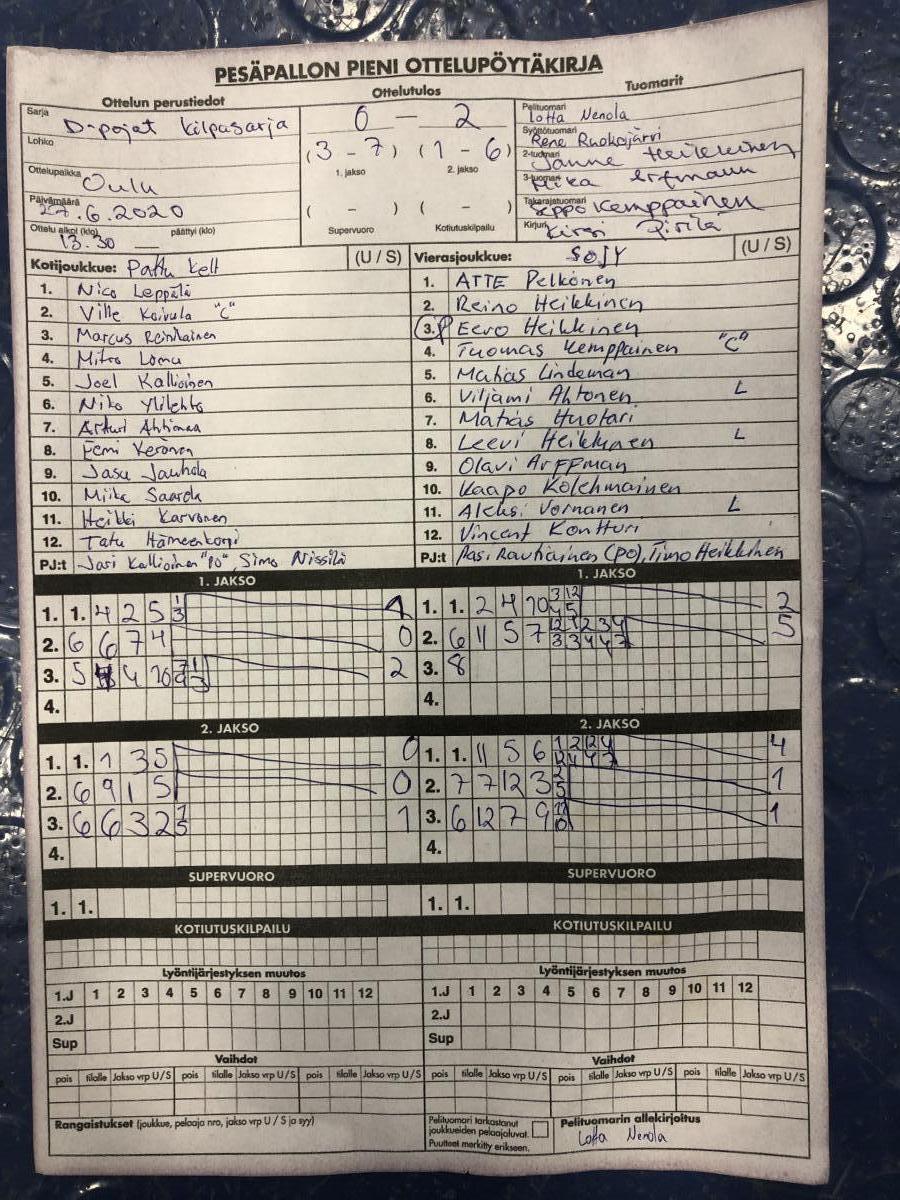 PESÄPALLON PIENI OTTELUPÖYTÄKIRJA
Ottelun perustiedot
Ottelutulos
Tuomarit
Sarja
D-pojat Kilpasarja
0 — 2
Pelituomari
Lotta Nenola
Lohko
(3 - 7) (1 - 6)
Syöttötuomari
Rene Ruokojärvi
1. jakso 2. jakso
2-tuomari
Janne Heikkinen
Ottelupaikka
Oulu
3-tuomari
Mika Arfmann
Päivämäärä
27.6.2020
( - ) ( - )
Takarajatuomari
Seppo Kemppainen
Ottelu alkoi (klo) päättyi (klo)
13.30
Supervuoro Kotiutuskilpailu
Kirjuri
Kirsi Pirilä
Kotijoukkue: Pattu Kelt (U / S)
Vierasjoukkue: SoJy (U / S)
1. Nico Leppälä
2. Ville Koivula "C"
3. Marcus Reinikainen
4. Mitro Loma
5. Joel Kallioinen
6. Niko Ylilehto
7. Artturi Ahtinen
8. Eemi Keränen
9. Jasu Jauhola
10. Miika Saarela
11. Heikki Karvonen
12. Tatu Hämeenkorpi
PJ:t Jari Kallioinen "PO", Simo Nissilä
1. ATTE Pelkonen
2. Reino Heikkinen
3. Eero Heikkinen
4. Tuomas Kemppainen "C"
5. Matias Lindeman
6. Viljami Ahtonen L
7. Matias Huotari
8. Leevi Heikkinen L
9. Olavi Arffman
10. Kaapo Kolehmainen
11. Aleksi Vornanen L
12. Vincent Kontturi
PJ:t Pasi Rautiainen (PO), Timo Heikkinen
1. JAKSO
1. 1. 4 2 5 1 3 1
2. 6 6 7 4 0
3. 5 4 10 2
4.
1. JAKSO
1. 1. 2 4 10 3 12 4 5 2
2. 6 11 5 7 12 1 2 3 4 3 3 4 4 7 5
3. 8
4.
2. JAKSO
1. 1. 1 3 5 0
2. 6 9 1 5 0
3. 6 6 3 2 1
4.
2. JAKSO
1. 1. 11 5 6 1 2 12 4 4
2. 7 7 12 3 2 5 1
3. 6 12 7 9 1
4.
SUPERVUORO
1. 1.
SUPERVUORO
1. 1.
KOTIUTUSKILPAILU
KOTIUTUSKILPAILU
Lyöntijärjestyksen muutos
1.J 1 2 3 4 5 6 7 8 9 10 11 12
2.J
Sup
Lyöntijärjestyksen muutos
1.J 1 2 3 4 5 6 7 8 9 10 11 12
2.J
Sup
Vaihdot
pois tilalle Jakso vrp U / S pois tilalle Jakso vrp U / S pois tilalle Jakso vrp U / S
Vaihdot
pois tilalle Jakso vrp U / S pois tilalle Jakso vrp U / S pois tilalle Jakso vrp U / S
Rangaistukset (joukkue, pelaaja nro, jakso vrp U / S ja syy)
Pelituomari tarkastanut
joukkueiden pelaajaluvat.
Puutteet merkitty erikseen.
Pelituomarin allekirjoitus
Lotta Nenola